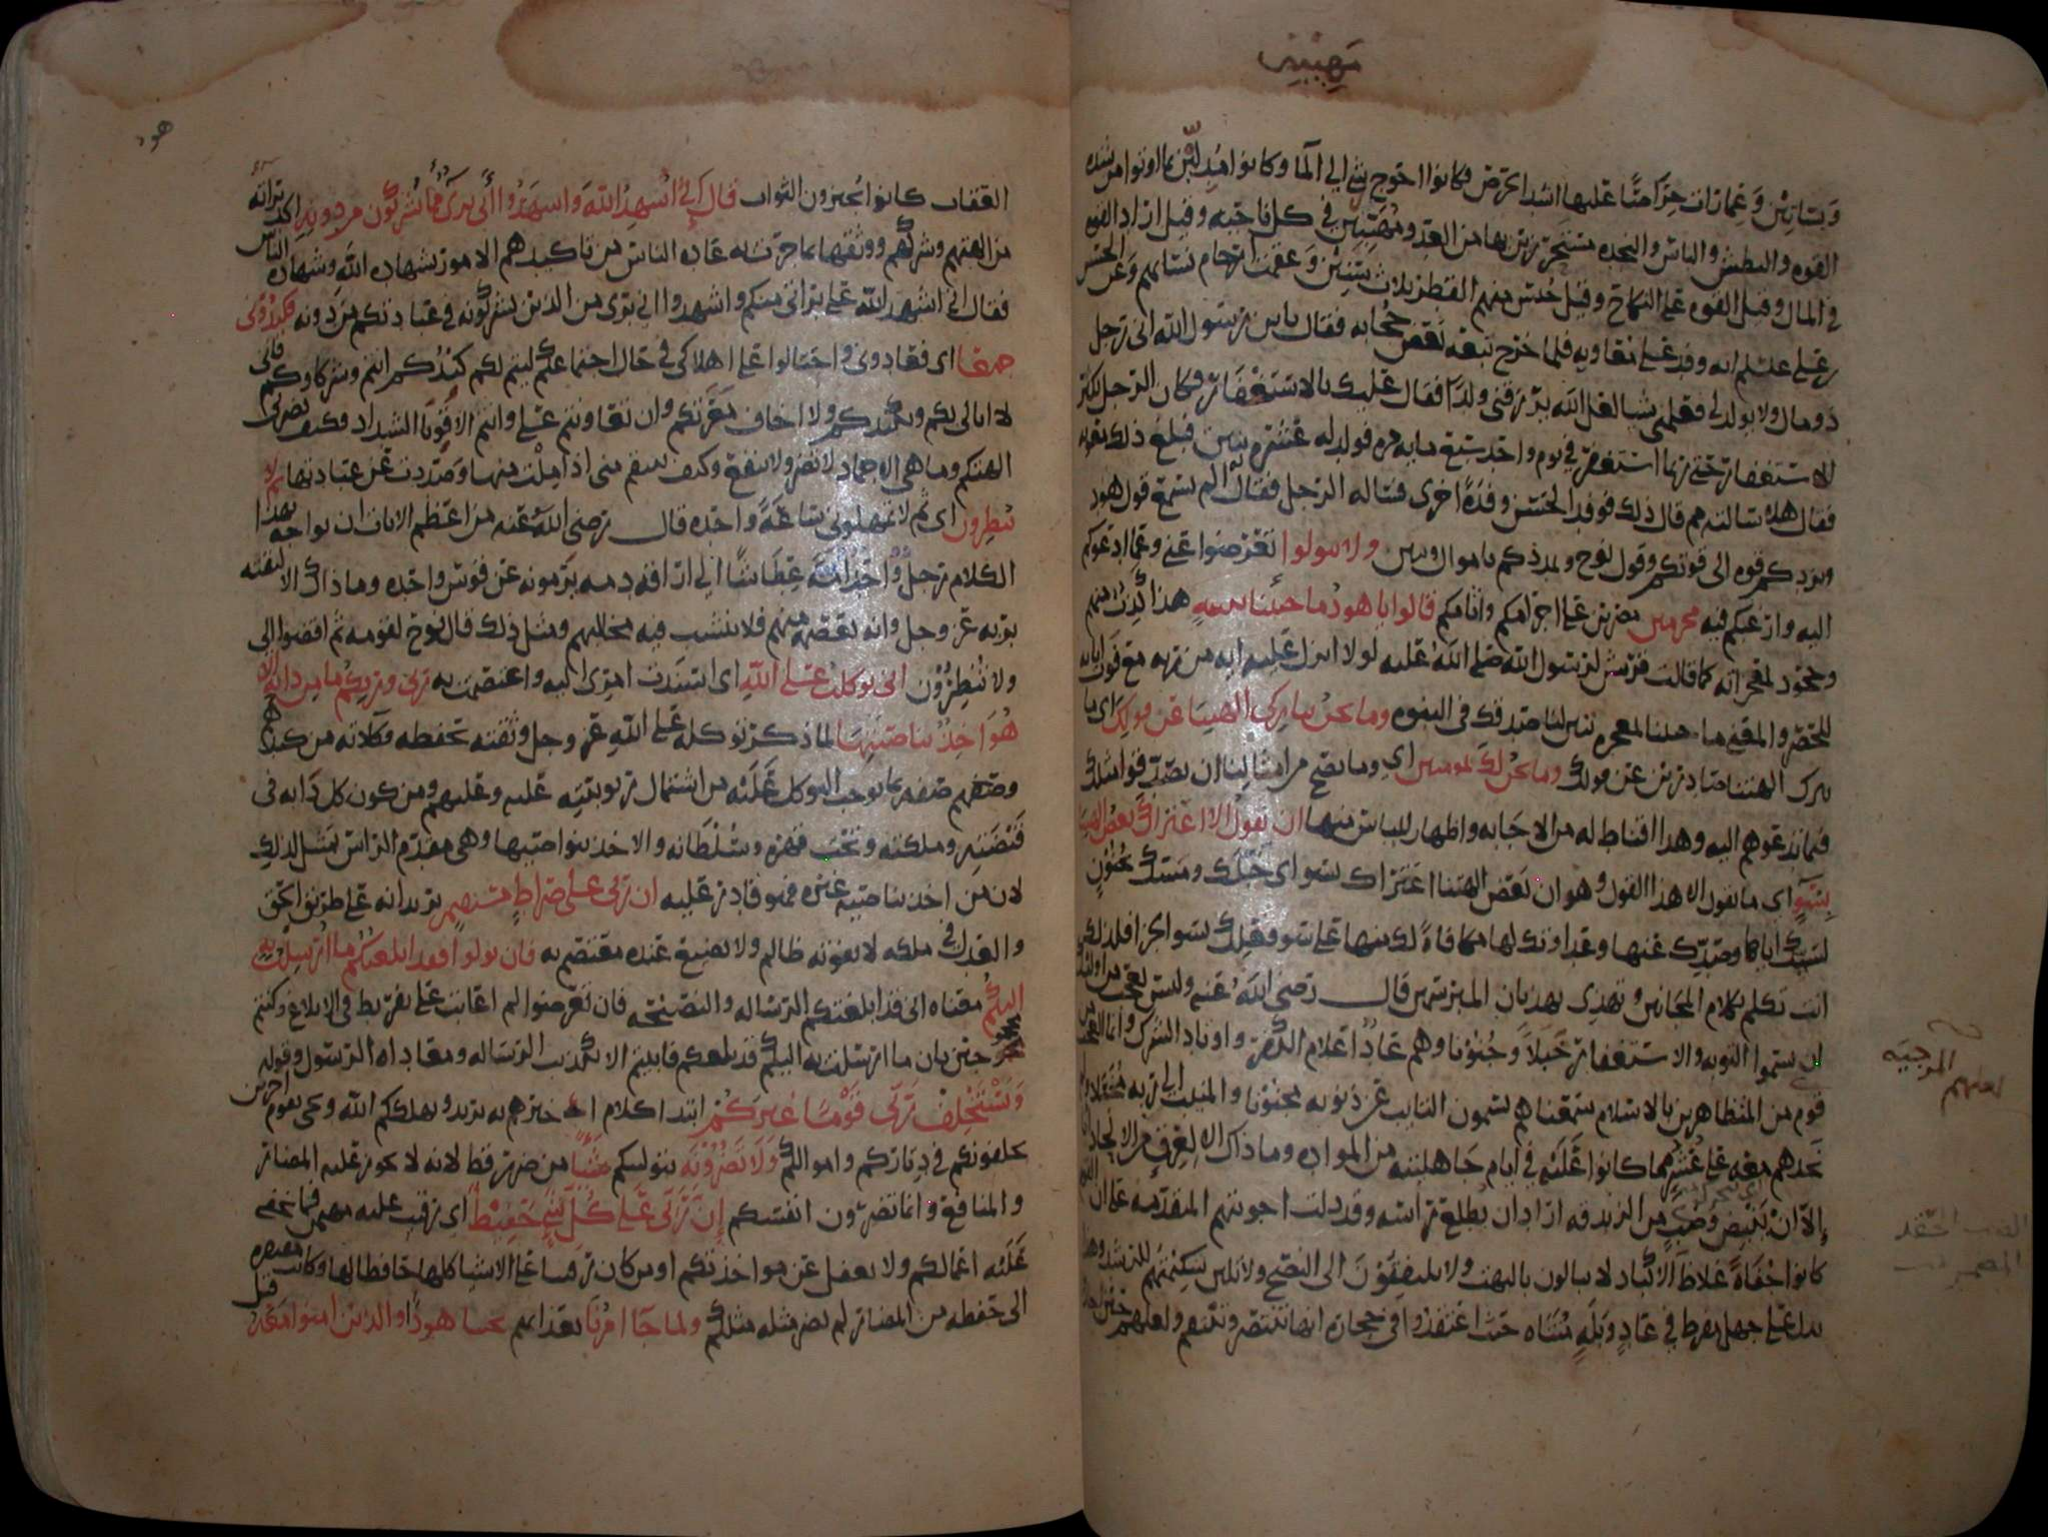 مهيبين
وبساتين وعمارات حراصا عليها اشد الحرص فكانوا احوج شي الى الما وكانوا مدلين بما اوتوا من شده
القوه والبطش والباس والنجده مستحرزين بها من العدو مهيبين في كل ناحيه وقيل اراد القوه
في المال وقيل القوه على النكاح وقيل حبس عنهم القطر ثلاث سنين وعقمت ارحام نسائهم وعن الحسن
بن علي عليهم انه وفد على معاويه فلما خرج تبعه بعض حجابه فقال يا بن رسول الله اني رجل
ذو مال ولا يولد لي فعلمني شيا لعل الله يرزقني ولدا فقال عليك بالاستغفار فكان الرجل يكثر
الاستغفار حتى ربما استغفر في يوم واحد سبع مايه مره فولد له عشره بنين فبلغ ذلك معويه
فقال هلا سالته مم قال ذلك فوفد الحسن وفده اخرى فساله الرجل فقال الم تسمع قول هود
ويزدكم قوه الى قوتكم وقول نوح ويمددكم باموال وبنين ولا تتولوا تعرضوا عني وعما ادعوكم
اليه وارغبكم فيه مجرمين مصرين على اجرامكم واثامكم قالوا يا هود ما جئتنا ببينه هذا كذب منهم
وجحود لمعجزاته كما قالت قريش لرسول الله صلى الله عليه لولا انزل عليه ايه من ربه مع فوت اياته
للحصر والمعنى ما جئتنا بمعجزه تبين لنا صدقك في النبوه وما نحن بتاركي الهتنا عن قولك اي ما
نترك الهتنا صادرين عن قولك وما نحن لك بمومنين اي وما يصح من امثالنا ان يصدقوا مثلك
فيما تدعوهم اليه وهذا اقناط له من الاجابه واظهار للياس منها ان نقول الا اعتراك بعض الهتنا
بسو اي ما نقول الا هذا القول وهو ان بعض الهتنا اعتراك بسو اي خبلك ومسك بجنون
لسبك اياها وصدك عنها وعداوتك لها مكافاة لك منها على سو فعلك بسو الجزا فلذلك
انت تكلم بكلام المجانين وتهذي بهذيان المبرسمين قال رضي الله عنه وليس بعجب من اولئك
ان يسموا التوبه والاستغفار خبلا وجنونا وهم عاد اعلام الكفر واوتاد الشرك وانما العجب من
قوم من المتظاهرين بالاسلام سمعناهم يسمون التايب عن ذنوبه مجنونا والمنيب الى ربه مخبلا
نجدهم معه على عشر مما كانوا عليه في ايام جاهليته من الموادة وما ذاك الا لعرق من الالحاد
الا ان ينبض وضب من الزندقه اراد ان يطلع راسه وقد دلت اجوبتهم المتقدمه على ان القوم
كانوا جفاة غلاظ الاكباد لا يبالون بالبهت ولا يلتفتون الى النصح ولا تلين شكيمتهم للرشد وهذا
يدل على جهل مفرط في عاد وبله متناه حيث اعتقدوا في حجارة انها تنتصر وتنتقم ولعلهم حين
المرجيه
لعنهم
الضب الحقد
هود
العقاب كانوا يجيزون الثواب قال اني اشهد الله واشهدوا اني بري مما تشركون من دونه اكد براته
من الهتهم وشركهم ووثقها بما جرت به عاده الناس من تاكيدهم الامور بشهاده الله وشهاده الناس
فقال اني اشهد الله على براتي منكم واشهدوا اني بري من الذين تشركونه في عبادتكم من دونه فكيدوني
جميعا اي فقادوني واحتالوا على اهلاكي في حال اجتماعكم ليتم لكم كيدكم انتم وشركاوكم فاني
لا ابالي بكم وبكيدكم ولا اخاف معرتكم وان تعاونتم علي وانتم الاقويا الشداد وكيف تضرني
الهتكم وما هي الا جماد لا تضر ولا تنفع وكيف تنتقم مني اذا نلت منها وصددت عن عبادتها ثم لا
تنظرون اي ثم لا تمهلوني ساعة واحده قال رضي الله عنه من اعظم الايات ان يواجه بهذا
الكلام رجل واحد امة عطاشا الى اراقه دمه يرمونه عن قوس واحده وما ذاك الا لثقته
بربه عز وجل وانه يعصمه منهم فلا تنشب فيه مخالبهم ومثل ذلك قال نوح لقومه ثم اقضوا الي
ولا تنظرون اني توكلت على الله اي اسندت امري اليه واعتصمت به ربي وربكم ما من دابه الا
هو اخذ بناصيتها لما ذكر توكله على الله عز وجل وثقته بحفظه وكلاته من كيدهم
وصفه بما يوجب التوكل عليه من اشتمال ربوبيته عليه وعليهم ومن كون كل دابه في
قبضته وملكته وتحت قهره وسلطانه والاخذ بنواصيها وهي مقدم الراس تمثيل لذلك
لان من اخذ بناصيه غيره فهو قادر عليه ان ربي على صراط مستقيم يريد انه على طريق الحق
والعدل في ملكه لا يفوته ظالم ولا يضيع عنده معتصم به فان تولوا فقد ابلغتكم ما ارسلت به
اليكم معناه اني قد ابلغتكم الرساله والنصيحه فان تعرضوا لم اعاتب على تفريط في الابلاغ وكنتم
محجوجين بان ما ارسلت به اليكم قد بلغكم فابيتم الا تكذيب الرساله ومعاداه الرسول وقوله
ويستخلف ربي قوما غيركم ابتدا كلام اي خيرهم به يريد ويهلككم الله ويجي بقوم اخرين
يخلفونكم في دياركم واموالكم ولا تضرونه بتوليكم شيئا من ضرر قط لانه لا يجوز عليه المضار
والمنافع وانما تضرون انفسكم ان ربي على كل شي حفيظ اي رقيب عليه مهيمن فما تخفى
عليه اعمالكم ولا يغفل عن مواخذتكم او من كان رقيبا على الاشيا كلها حافظا لها وكانت مفتقره
الى حفظه من المضار لم يضر مثله مثلكم ولما جا امرنا بعذابهم نجينا هودا والذين امنوا معه قيل